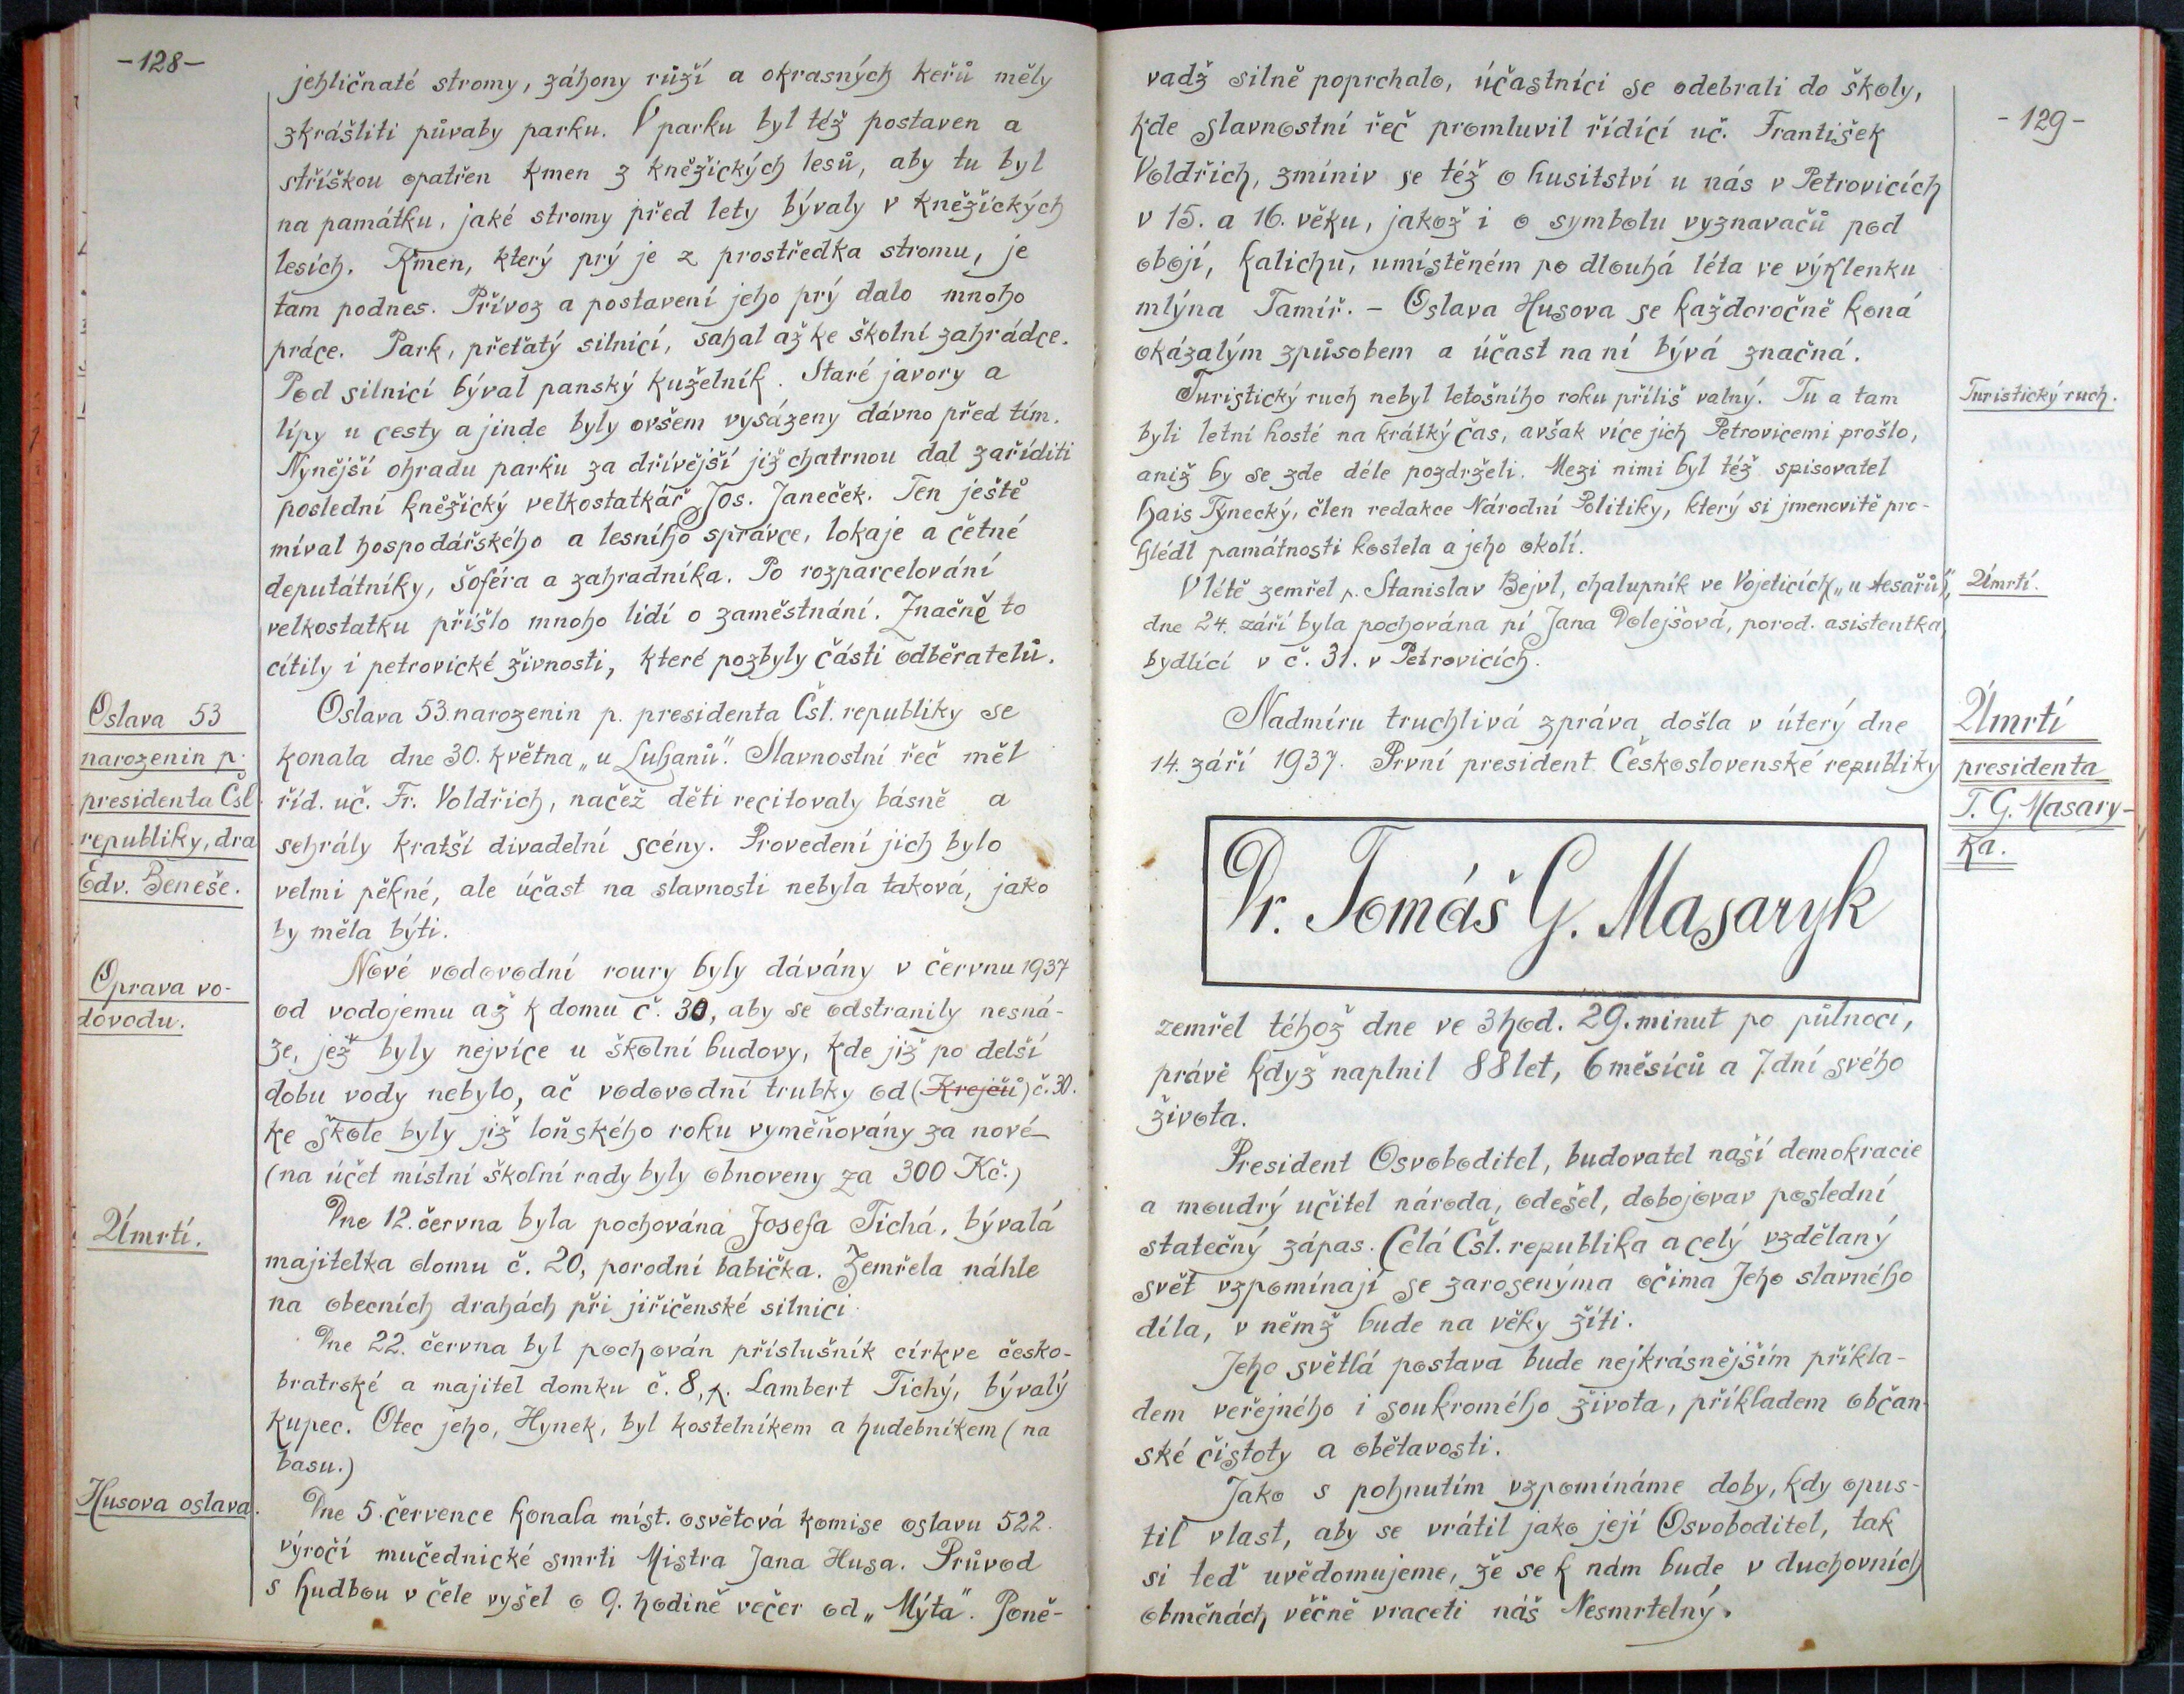 -128-
jehličnaté stromy, záhony růží a okrasných keřů měly
zkrášliti půvaby parku. V parku byl též postaven a
stříškou opatřen kmen z kněžických lesů, aby tu byl
na památku, jaké stromy před lety bývaly v kněžických
lesích. Kmen, který prý je z prostředka stromu, je
tam podnes. Přívoz a postavení jeho prý dalo mnoho
práce. Park, přeťatý silnicí, sahal až ke školní zahrádce.
Pod silnicí býval panský kuželník. Staré javory a
lípy u cesty a jinde byly ovšem vysázeny dávno před tím.
Nynější ohradu parku za dřívější již chatrnou dal zaříditi
poslední kněžický velkostatkář Jos. Janeček. Ten ještě
míval hospodářského a lesního správce, lokaje a četné
deputátníky, šoféra a zahradníka. Po rozparcelování
velkostatku přišlo mnoho lidí o zaměstnání. Značně to
cítily i petrovické živnosti, které pozbyly části odběratelů.
Oslava 53
narozenin p.
presidenta Čsl.
republiky, dra
Edv. Beneše.
Oslava 53. narozenin p. presidenta Čsl. republiky se
konala dne 30. května „u Luhanů". Slavnostní řeč měl
říd. uč. Fr. Voldřich, načež děti recitovaly básně a
sehrály kratší divadelní scény. Provedení jich bylo
velmi pěkné, ale účast na slavnosti nebyla taková, jako
by měla býti.
Oprava vo-
dovodu.
Nové vodovodní roury byly dávány v červnu 1937
od vodojemu až k domu č. 30, aby se odstranily nesná-
ze, jež byly nejvíce u školní budovy, kde již po delší
dobu vody nebylo, ač vodovodní trubky od (Krejčů) č. 30.
ke škole byly již loňského roku vyměňovány za nové
(na účet místní školní rady byly obnoveny za 300 Kč.)
Úmrtí.
Dne 12. června byla pochována Josefa Tichá, bývalá
majitelka domu č. 20, porodní babička. Zemřela náhle
na obecních drahách při jiřičenské silnici.
Dne 22. června byl pochován příslušník církve česko-
bratrské a majitel domku č. 8, p. Lambert Tichý, bývalý
kupec. Otec jeho, Hynek, byl kostelníkem a hudebníkem (na
basu.)
Husova oslava.
Dne 5. července konala míst. osvětová komise oslavu 522.
výročí mučednické smrti Mistra Jana Husa. Průvod
s hudbou v čele vyšel o 9. hodině večer od „Mýta". Poně-
-129-
vadž silně poprchalo, účastníci se odebrali do školy,
kde slavnostní řeč promluvil řídící uč. František
Voldřich, zmíniv se též o husitství u nás v Petrovicích
v 15. a 16. věku, jakož i o symbolu vyznavačů pod
obojí, kalichu, umístěném po dlouhá léta ve výklenku
mlýna Tamíř. – Oslava Husova se každoročně koná
okázalým způsobem a účast na ní bývá značná.
Turistický ruch.
Turistický ruch nebyl letošního roku příliš valný. Tu a tam
byli letní hosté na krátký čas, avšak více jich Petrovicemi prošlo,
aniž by se zde déle pozdrželi. Mezi nimi byl též spisovatel
Hais Týnecký, člen redakce Národní Politiky, který si jmenovitě pro-
hlédl památnosti kostela a jeho okolí.
Úmrtí.
V létě zemřel p. Stanislav Bejvl, chalupník ve Vojeticích „u tesařů",
dne 24. září byla pochována pí Jana Dolejšová, porod. asistentka,
bydlící v č. 31. v Petrovicích.
Úmrtí
presidenta
T. G. Masary-
ka.
Nadmíru truchlivá zpráva došla v úterý dne
14. září 1937. První president Československé republiky
Dr. Tomáš G. Masaryk
zemřel téhož dne ve 3 hod. 29. minut po půlnoci,
právě když naplnil 88 let, 6 měsíců a 7. dní svého
života.
President Osvoboditel, budovatel naší demokracie
a moudrý učitel národa, odešel, dobojovav poslední
statečný zápas. Celá Čsl. republika a celý vzdělaný
svět vzpomínají se zarosenýma očima Jeho slavného
díla, v němž bude na věky žíti.
Jeho světlá postava bude nejkrásnějším příkla-
dem veřejného i soukromého života, příkladem občan-
ské čistoty a obětavosti.
Jako s pohnutím vzpomínáme doby, kdy opus-
til vlast, aby se vrátil jako její Osvoboditel, tak
si teď uvědomujeme, že se k nám bude v duchovních
obměnách věčně vraceti náš Nesmrtelný.